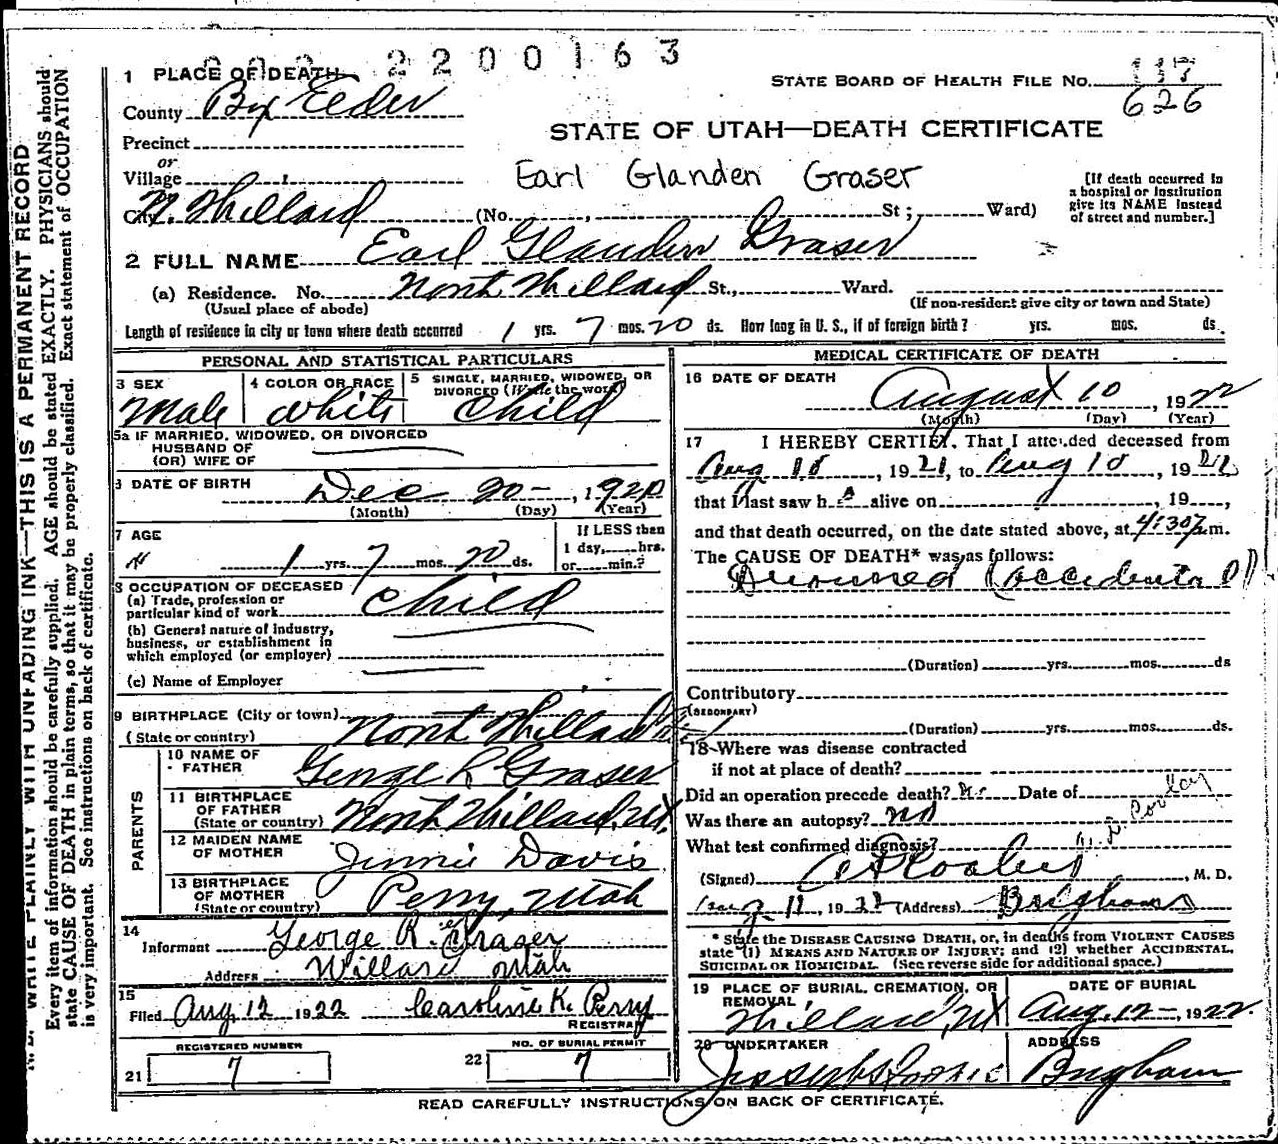 2200163
1 PLACE OF DEATH
STATE BOARD OF HEALTH FILE No. 117
626
County Box Elder
STATE OF UTAH—DEATH CERTIFICATE
Precinct
or
Village
Earl Glanden Graser
[If death occurred in a hospital or institution give its NAME instead of street and number.]
City N. Willard (No. , St; Ward)
2 FULL NAME Earl Glanden Graser
(a) Residence. No. North Willard St., Ward.
(Usual place of abode) (If non-resident give city or town and State)
Length of residence in city or town where death occurred 1 yrs. 7 mos. 20 ds. How long in U. S., if of foreign birth? yrs. mos. ds.
PERSONAL AND STATISTICAL PARTICULARS
3 SEX Male
4 COLOR OR RACE White
5 SINGLE, MARRIED, WIDOWED, OR DIVORCED (Write the word) Child
5a IF MARRIED, WIDOWED, OR DIVORCED
HUSBAND OF
(OR) WIFE OF
DATE OF BIRTH Dec 20 - , 1920
(Month) (Day) (Year)
7 AGE 1 yrs. 7 mos. 20 ds.
If LESS then 1 day, hrs. or min.?
8 OCCUPATION OF DECEASED
(a) Trade, profession or particular kind of work Child
(b) General nature of industry, business, or establishment in which employed (or employer)
(c) Name of Employer
9 BIRTHPLACE (City or town)
(State or country) North Willard
PARENTS
10 NAME OF FATHER George R Graser
11 BIRTHPLACE OF FATHER (State or country) North Willard, Ut.
12 MAIDEN NAME OF MOTHER Jennie Davis
13 BIRTHPLACE OF MOTHER (State or country) Perry, Utah
14 Informant George R. Graser
Address Willard Utah
15 Filed Aug. 12 1922 Caroline K. Perry
REGISTRAR
REGISTERED NUMBER NO. OF BURIAL PERMIT
21 7 22 7
MEDICAL CERTIFICATE OF DEATH
16 DATE OF DEATH August 10, 1922
(Month) (Day) (Year)
17 I HEREBY CERTIFY, That I attended deceased from
Aug 10, 19 , to Aug 10, 19
that I last saw h alive on , 19 ,
and that death occurred, on the date stated above, at 4:30 P.m.
The CAUSE OF DEATH* was as follows:
Drowned (accidental)
(Duration) yrs. mos. ds
Contributory
(SECONDARY)
(Duration) yrs. mos. ds.
18 Where was disease contracted
if not at place of death?
Did an operation precede death? No Date of
Was there an autopsy? no
What test confirmed diagnosis?
(Signed) , M. D.
Aug. 11, 1922 (Address) Brigham
* State the DISEASE CAUSING DEATH, or, in deaths from VIOLENT CAUSES
state (1) MEANS AND NATURE OF INJURY; and (2) whether ACCIDENTAL,
SUICIDAL OR HOMICIDAL. (See reverse side for additional space.)
19 PLACE OF BURIAL, CREMATION, OR REMOVAL Willard, Ut
DATE OF BURIAL Aug. 12 -, 1922
20 UNDERTAKER
ADDRESS Brigham
READ CAREFULLY INSTRUCTIONS ON BACK OF CERTIFICATE.
WRITE PLAINLY WITH UNFADING INK—THIS IS A PERMANENT RECORD
Every item of information should be carefully supplied. AGE should be stated EXACTLY. PHYSICIANS should
state CAUSE OF DEATH in plain terms, so that it may be properly classified. Exact statement of OCCUPATION
is very important. See instructions on back of certificate.